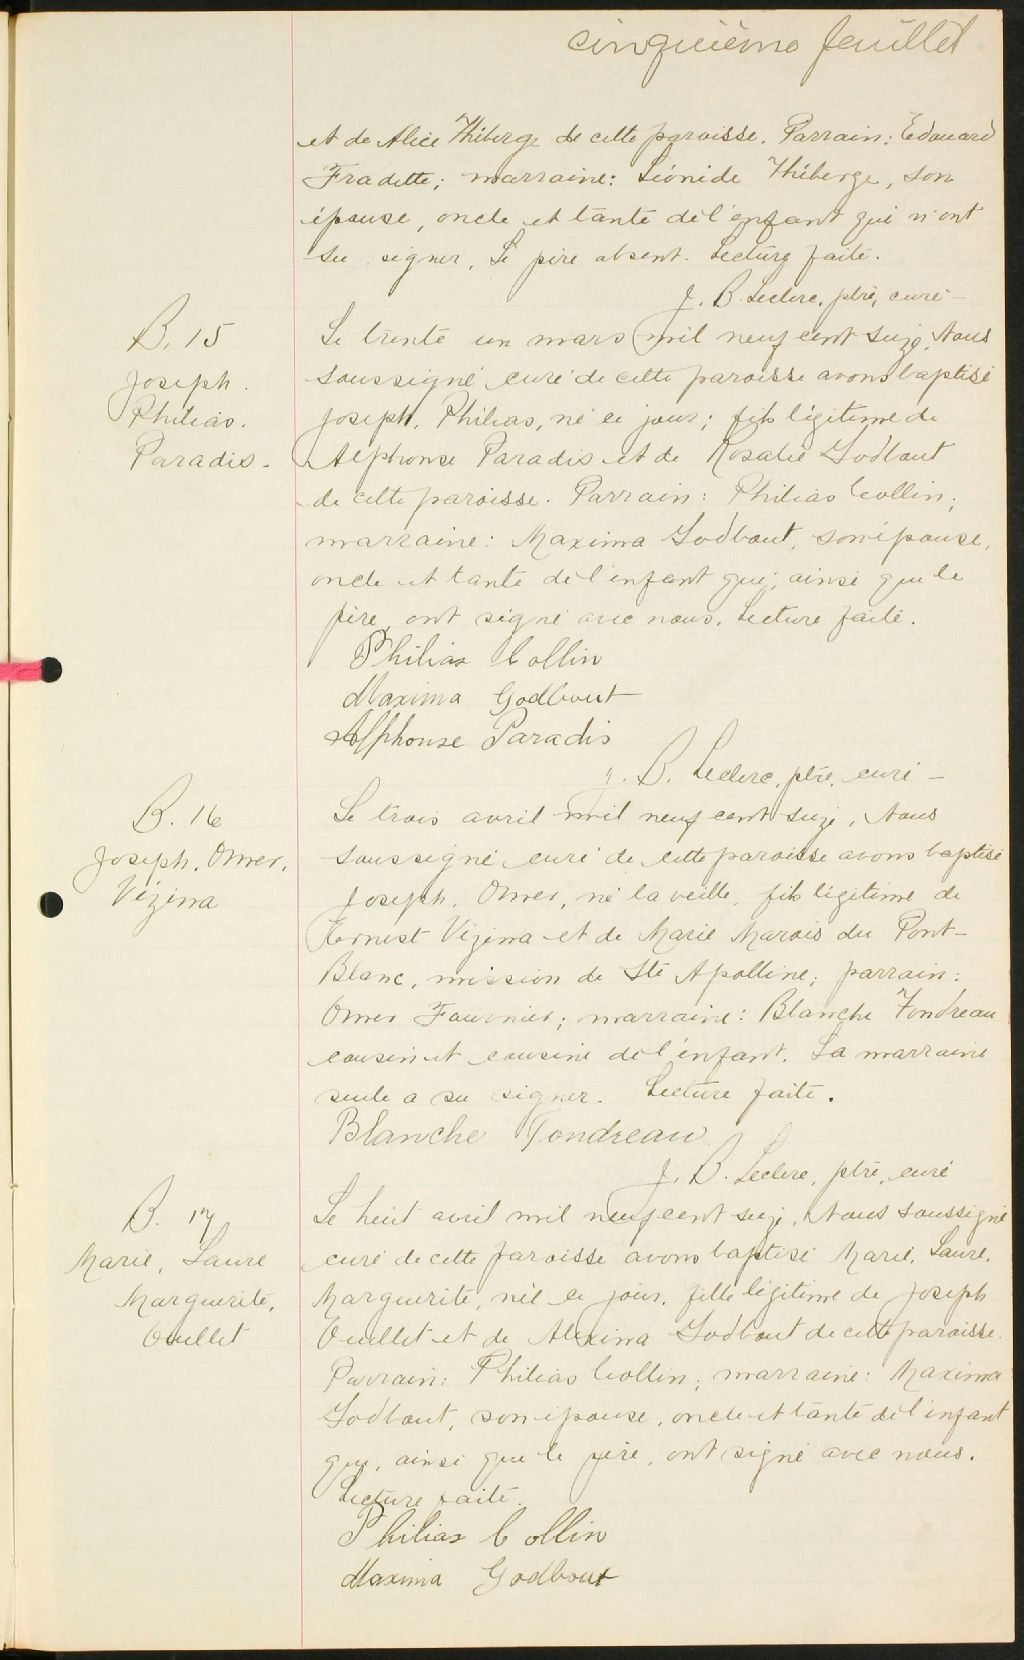 cinquième feuillet
et de Alice Thiberge de cette paroisse. Parrain: Edouard
Fradette; marraine: Léonide Théberge, son
épouse, oncle et tante de l'enfant qui n'ont
su signer. Le père absent. Lecture faite.
J. B. Leclerc, ptre, curé –
B. 15
Joseph.
Philias.
Paradis.
Le trente un mars mil neuf cent seize, Nous
soussigné curé de cette paroisse avons baptisé
Joseph, Philias, né ce jour; fils légitime de
Alphonse Paradis et de Rosalie Godbout
de cette paroisse. Parrain: Philias Collin;
marraine: Maxima Godbout, son épouse,
oncle et tante de l'enfant qui, ainsi que le
père, ont signé avec nous. Lecture faite.
Philias Collin
Maxima Godbout
Alphonse Paradis
J. B. Leclerc, ptre, curé –
B. 16
Joseph, Omer,
Vézina
Le trois avril mil neuf cent seize, Nous
soussigné curé de cette paroisse avons baptisé
Joseph, Omer, né la veille, fils légitime de
Ernest Vézina et de Marie Marois du Pont-
Blanc, mission de Ste Apolline; parrain:
Omer Fournier; marraine: Blanche Tondreau
cousin et cousine de l'enfant. La marraine
seule a su signer. Lecture faite.
Blanche Tondreau
J. B. Leclerc, ptre, curé
B. 17
Marie, Laure
Marguerite,
Ouellet
Le huit avril mil neuf cent seize, Nous soussigné
curé de cette paroisse avons baptisé Marie, Laure,
Marguerite, née ce jour, fille légitime de Joseph
Ouellet et de Alexina Godbout de cette paroisse.
Parrain: Philias Collin; marraine: Maxima
Godbout, son épouse, oncle et tante de l'enfant
qui, ainsi que le père, ont signé avec nous.
Lecture faite.
Philias Collin
Maxima Godbout